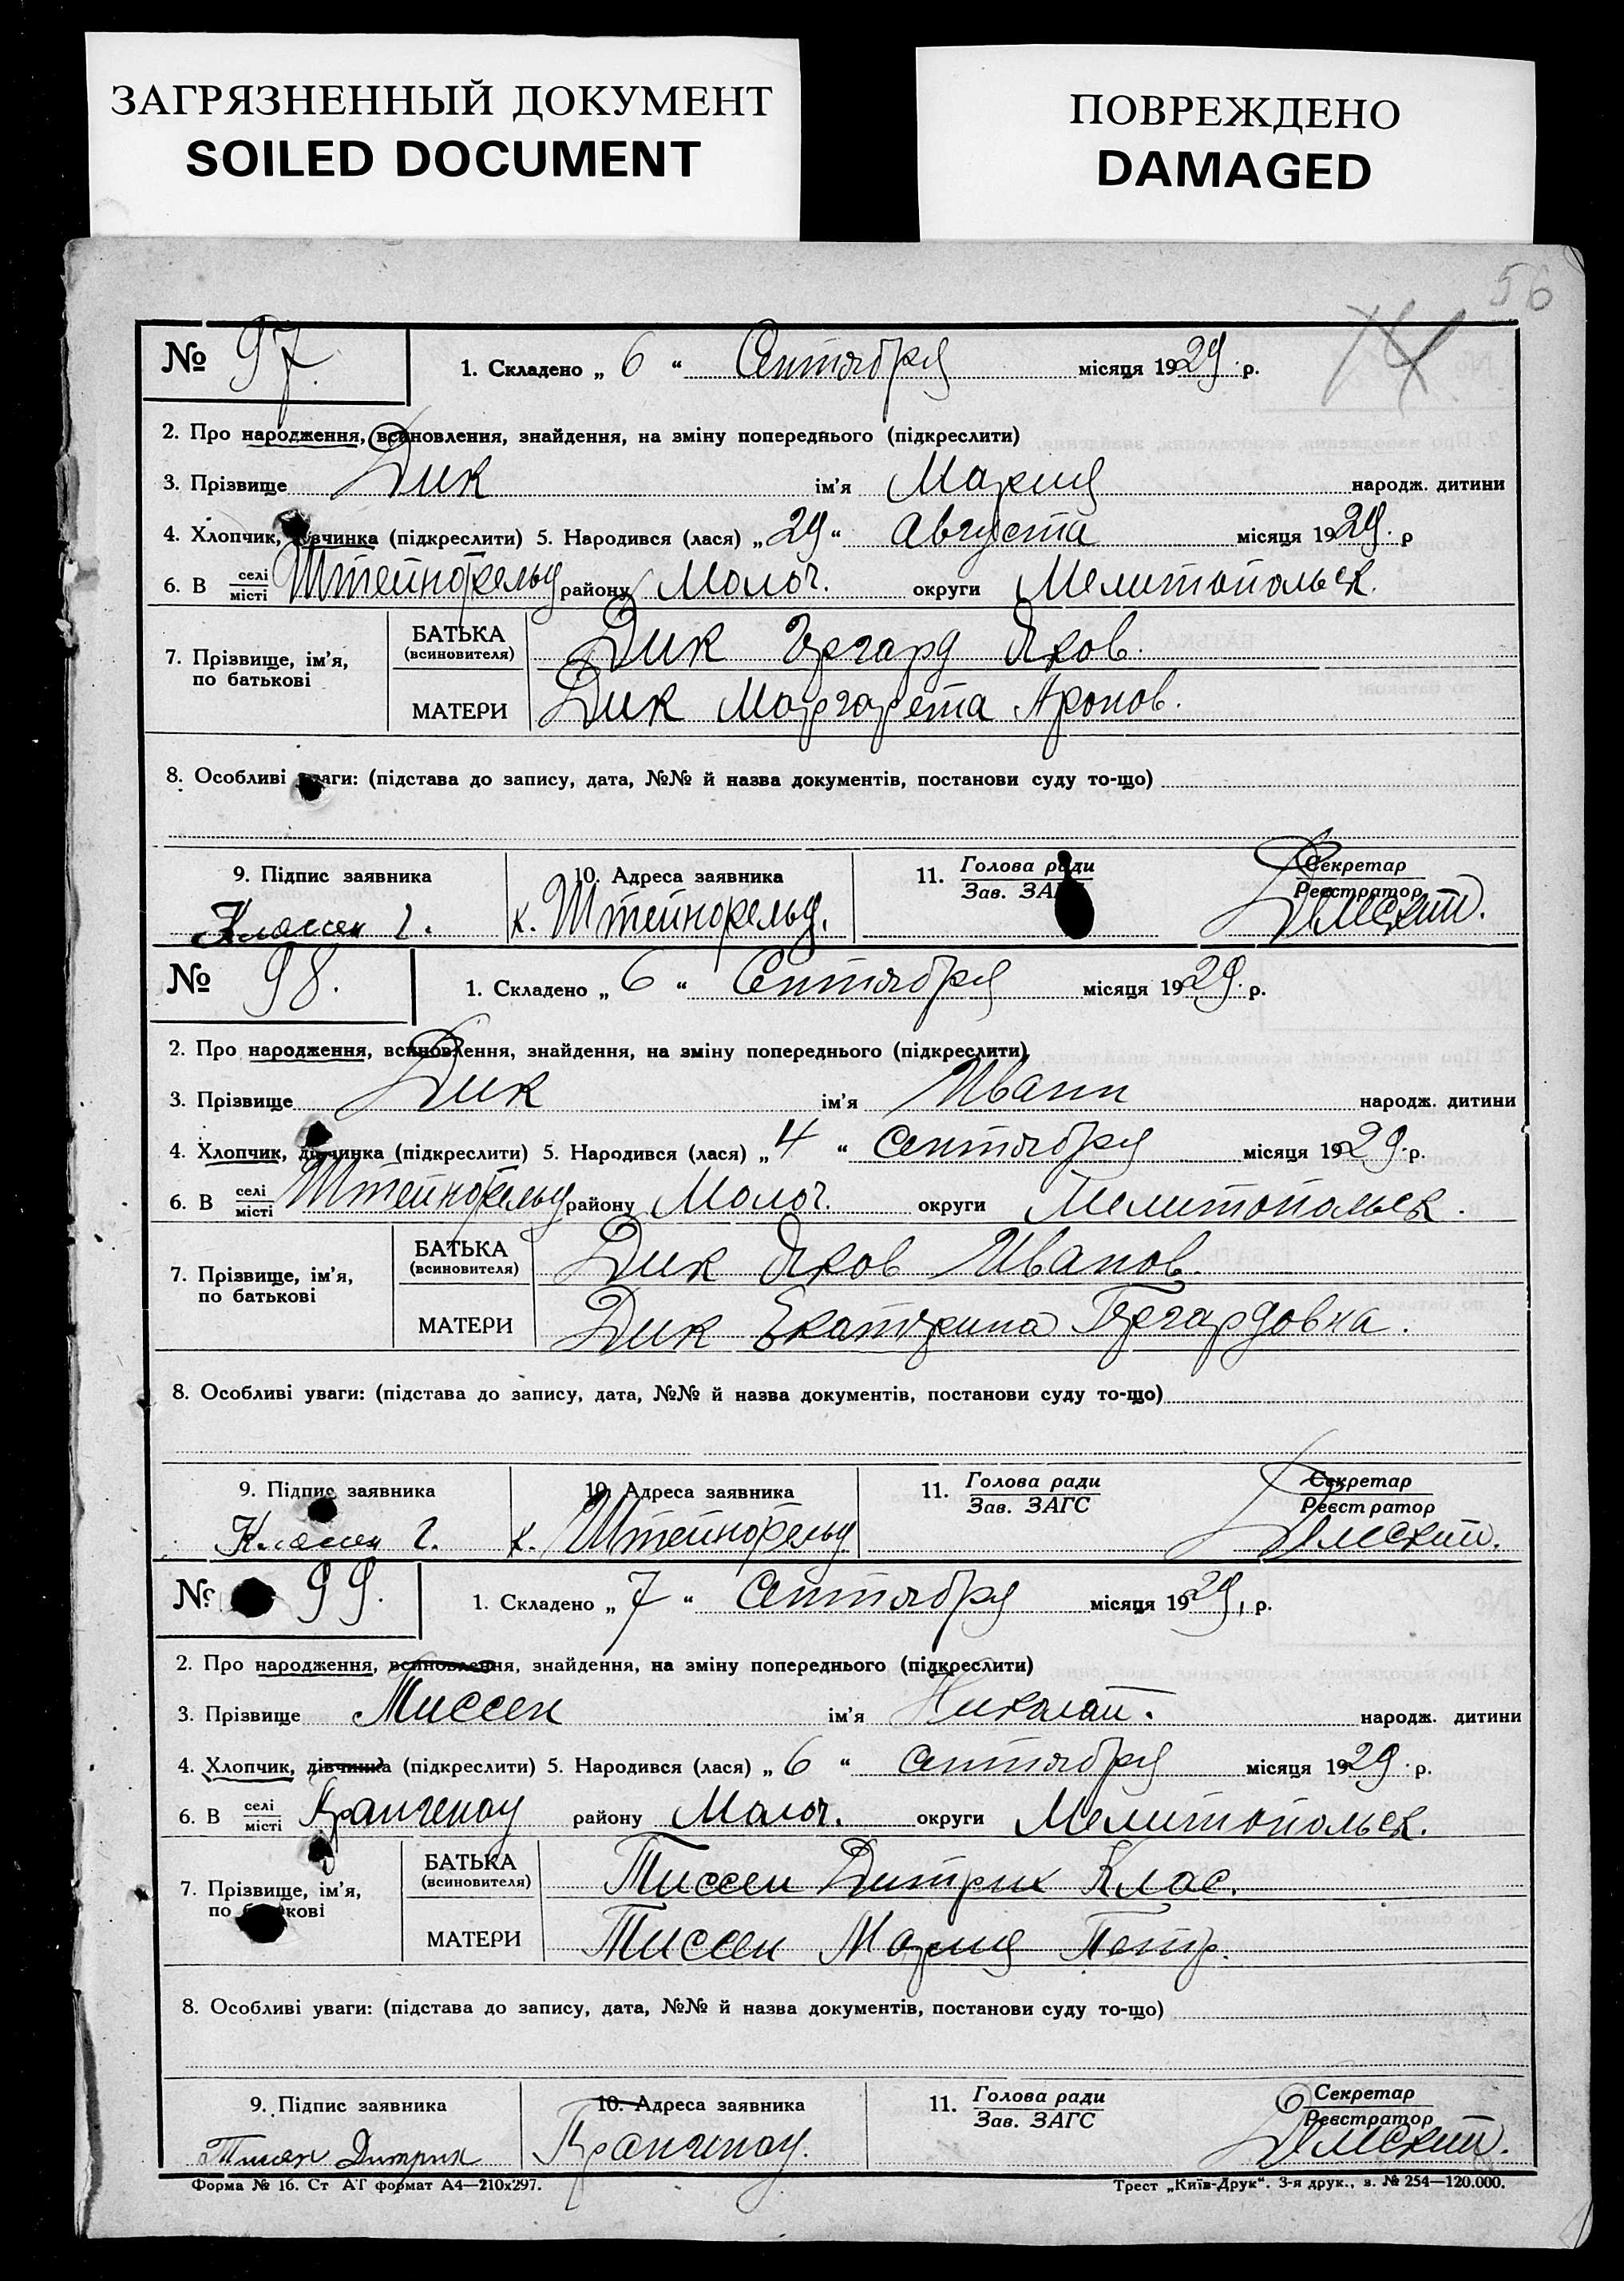 ЗАГРЯЗНЕННЫЙ ДОКУМЕНТ
SOILED DOCUMENT
ПОВРЕЖДЕНО
DAMAGED
56
№ 97.
1. Складено „ 6 “ Сентября місяця 1929 р.
2. Про народження, всиновлення, знайдення, на зміну попереднього (підкреслити)
3. Прізвище Дик ім’я Мария народж. дитини
4. Хлопчик, дівчинка (підкреслити) 5. Народився (лася) „ 29 “ Августа місяця 1929. р
6. В селі/місті Штейнфельд району Молоч. округи Мелитопольск.
7. Прізвище, ім’я, по батькові
БАТЬКА (всиновителя) Дик Гергард Яков.
МАТЕРИ Дик Маргарета Аронов.
8. Особливі уваги: (підстава до запису, дата, №№ й назва документів, постанови суду то-що)
9. Підпис заявника 10. Адреса заявника 11. Голова ради / Зав. ЗАГС Секретар / Реєстратор
Классен Г. к. Штейнфельд.
№ 98.
1. Складено „ 6 “ Сентября місяця 1929. р.
2. Про народження, всиновлення, знайдення, на зміну попереднього (підкреслити)
3. Прізвище Дик ім’я Иванн народж. дитини
4. Хлопчик, дівчинка (підкреслити) 5. Народився (лася) „ 4 “ Сентября місяця 1929. р.
6. В селі/місті Штейнфельд району Молоч. округи Мелитопольск.
7. Прізвище, ім’я, по батькові
БАТЬКА (всиновителя) Дик Яков Иванов.
МАТЕРИ Дик Екатерина Гергардовна.
8. Особливі уваги: (підстава до запису, дата, №№ й назва документів, постанови суду то-що)
9. Підпис заявника 10. Адреса заявника 11. Голова ради / Зав. ЗАГС Секретар / Реєстратор
Классен Г. к. Штейнфельд
№ 99.
1. Складено „ 7 “ Сентября місяця 1929, р.
2. Про народження, всиновлення, знайдення, на зміну попереднього (підкреслити)
3. Прізвище Тиссен ім’я Николай. народж. дитини
4. Хлопчик, дівчинка (підкреслити) 5. Народився (лася) „ 6 “ Сентября місяця 1929. р.
6. В селі/місті Прангенау району Молоч. округи Мелитопольск.
7. Прізвище, ім’я, по батькові
БАТЬКА (всиновителя) Тиссен Дитрих Клас.
МАТЕРИ Тиссен Мария Петр.
8. Особливі уваги: (підстава до запису, дата, №№ й назва документів, постанови суду то-що)
9. Підпис заявника 10. Адреса заявника 11. Голова ради / Зав. ЗАГС Секретар / Реєстратор
Тиссен Дитрих Прангенау.
Форма № 16. Ст АТ формат А4—210х297.
Трест „Київ-Друк“. 3-я друк., з. № 254—120.000.